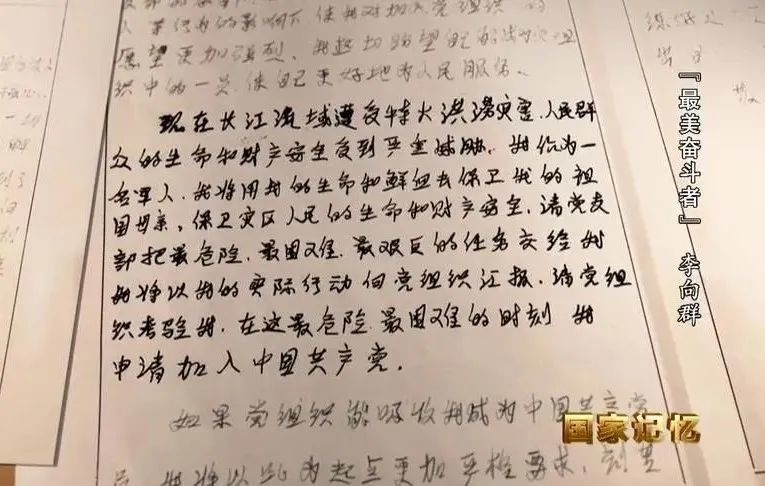 愿望更加强烈。我迫切盼望自己能成为党组
织中的一员,使自己更好地为人民服务。
现在长江流域遭受特大洪涝灾害,人民群
众的生命和财产安全受到严重威胁。我作为一
名军人,我将用我的生命和鲜血去保卫我的祖
国母亲,保卫灾区人民的生命和财产安全,请党支
部把最危险、最困难、最艰巨的任务交给我
我将以我的实际行动向党组织汇报,请党组
织考验我,在这最危险、最困难的时刻 我
申请加入中国共产党。
如果党组织能吸收我成为中国共产党
员,我将以此为起点更加严格要求,刻苦
『最美奋斗者』 李向群
国家记忆